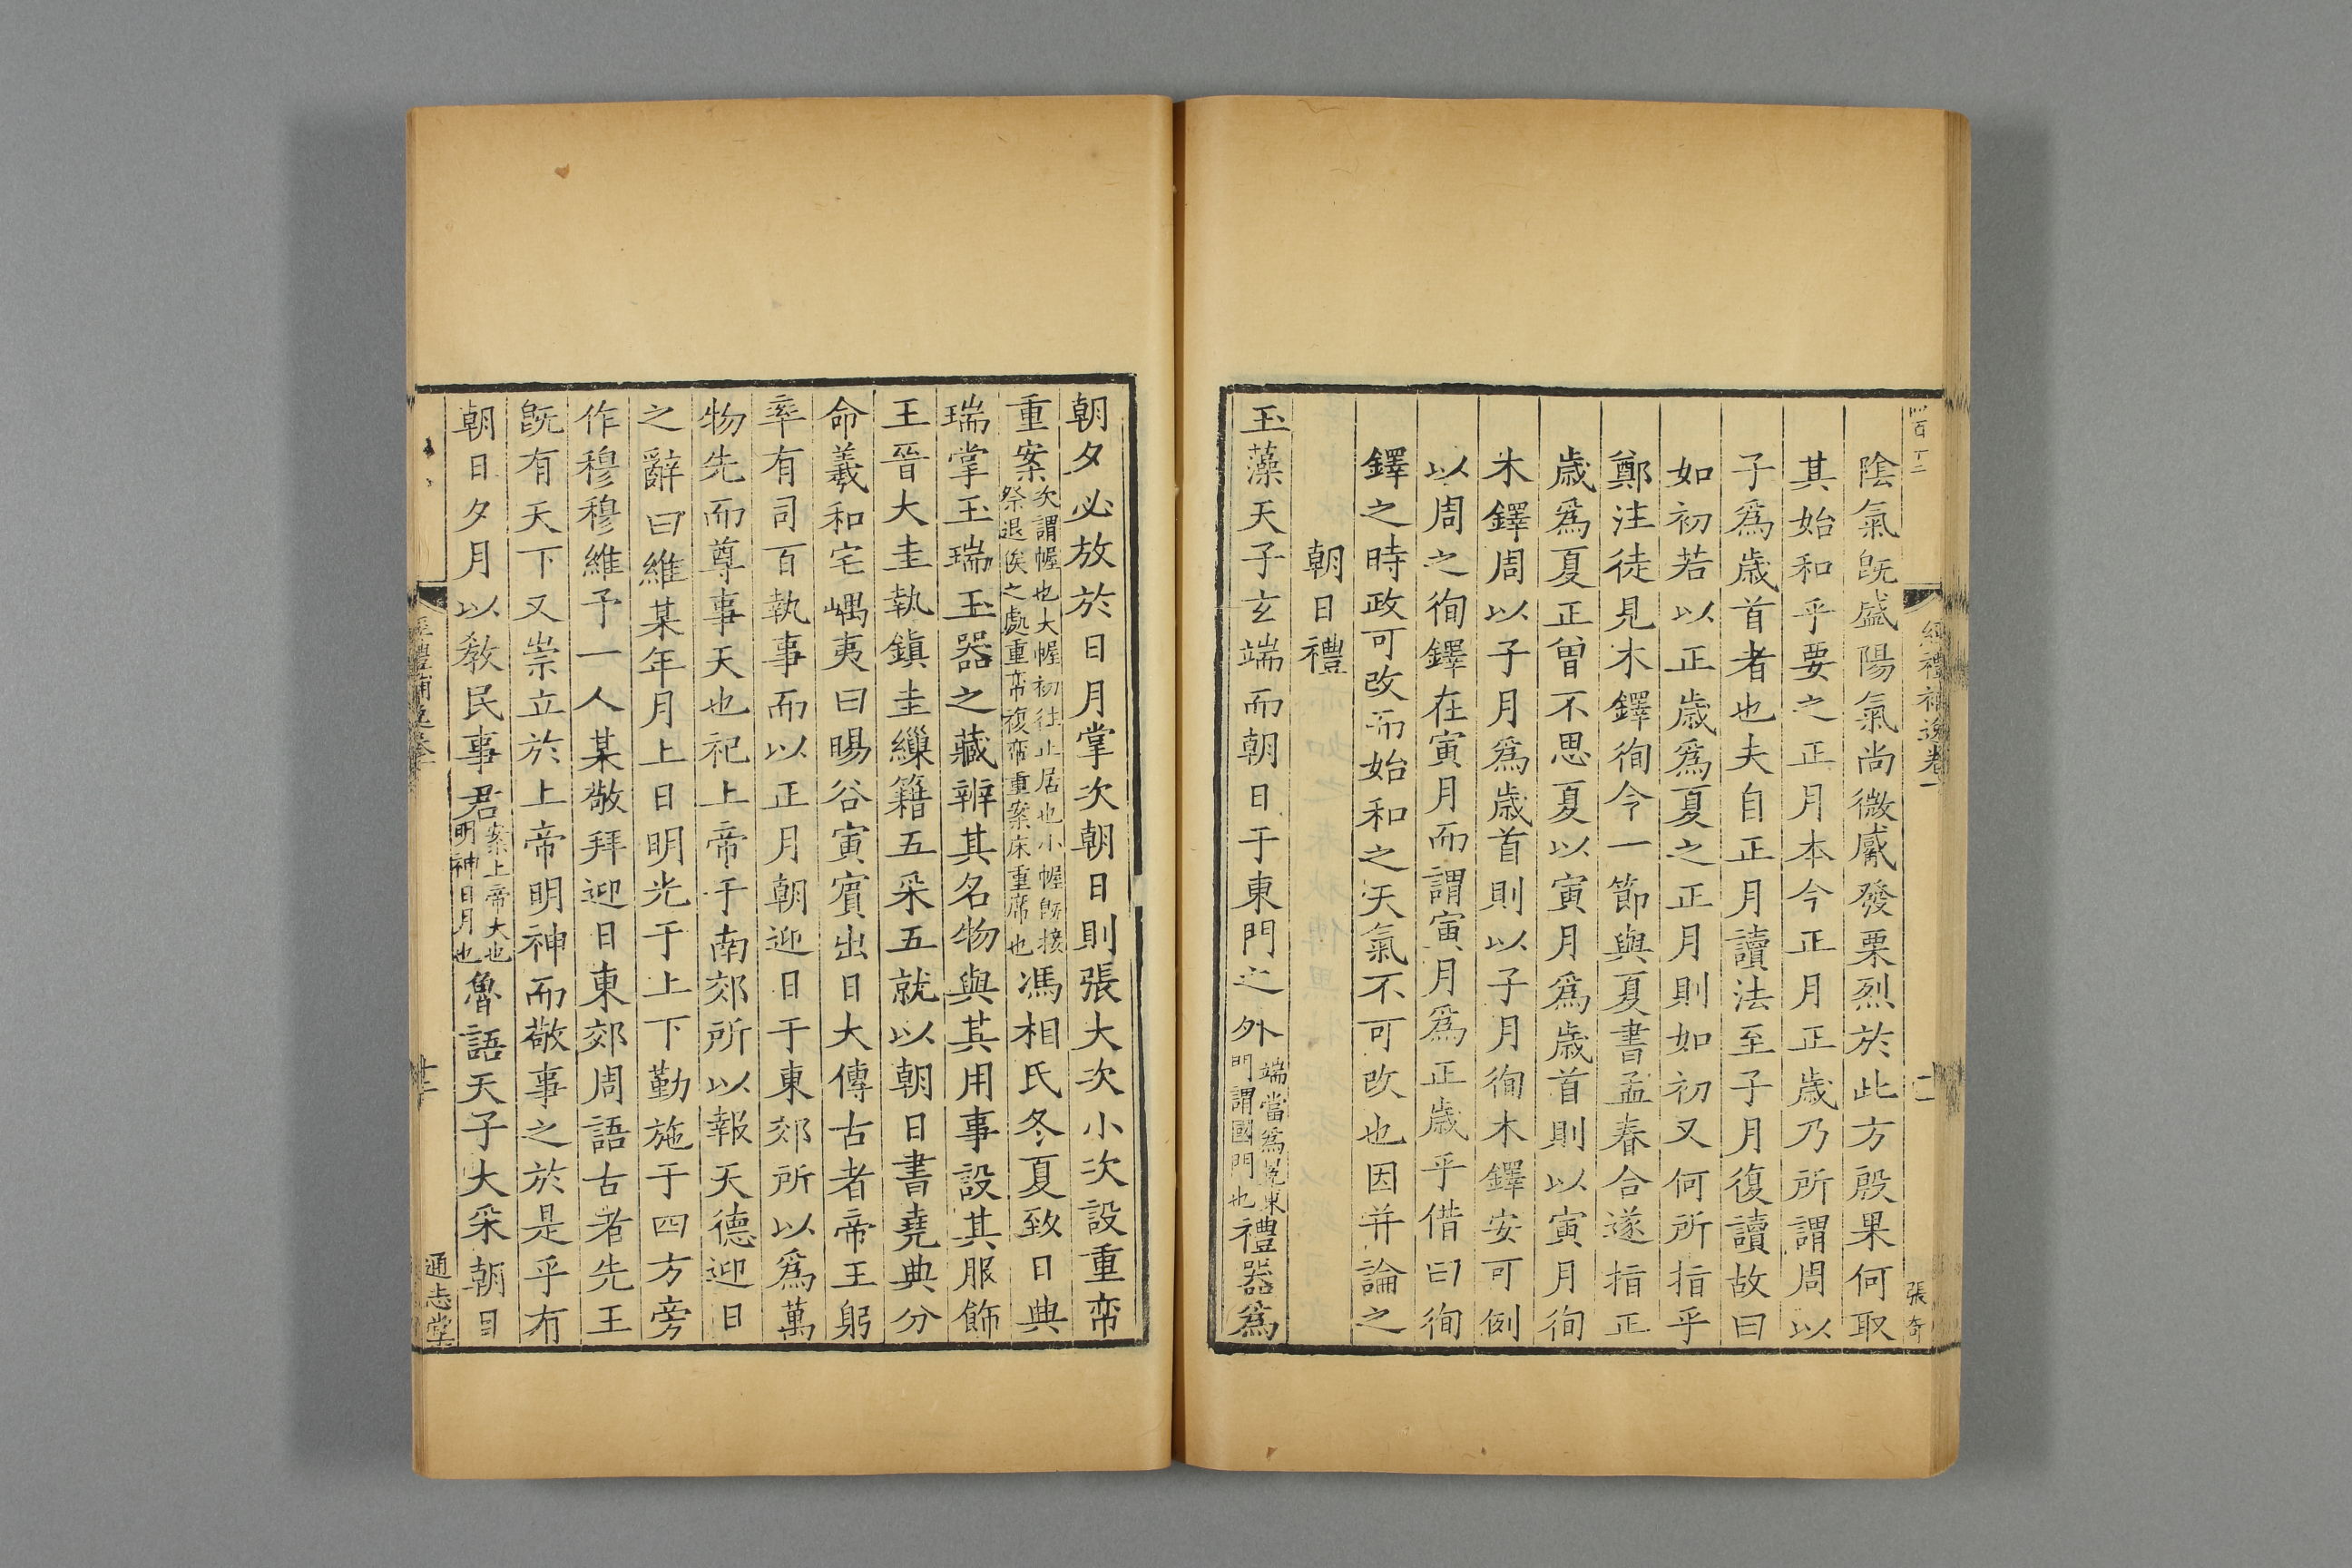 陰氣旣盛陽氣尚微觱發栗烈於此方殷果何取
其始和乎要之正月本今正月正歲乃所謂周以
子爲歲首者也夫自正月讀法至子月復讀故曰
如初若以正歲爲夏之正月則如初又何所指乎
鄭注徒見木鐸徇令一節與夏書孟春合遂指正
歲爲夏正曽不思夏以寅月爲歲首則以寅月徇
木鐸周以子月爲歲首則以子月徇木鐸安可例
以周之徇鐸在寅月而謂寅月爲正歲乎借曰徇
鐸之時政可改而始和之天氣不可改也因并論之
朝日禮
玉藻天子玄端而朝日于東門之外端當爲冕東門謂國門也禮器爲
經禮補逸卷一
十二
張奇
朝夕必放於日月掌次朝日則張大次小次設重帟
重案次謂幄也大幄初往止居也小幄旣接祭退俟之處重帟複帟重案床重席也馮相氏冬夏致日典
瑞掌玉瑞玉器之藏辨其名物與其用事設其服飾
王晉大圭執鎮圭繅籍五采五就以朝日書堯典分
命羲和宅嵎夷曰暘谷寅賓出日大傳古者帝王躬
率有司百執事而以正月朝迎日于東郊所以爲萬
物先而尊事天也祀上帝于南郊所以報天德迎日
之辭曰維某年月上日明光于上下勤施于四方旁
作穆穆維予一人某敬拜迎日東郊周語古者先王
旣有天下又崇立於上帝明神而敬事之於是乎有
朝日夕月以敎民事君案上帝大也明神日月也魯語天子大采朝日
經禮補逸卷一
十三
通志堂